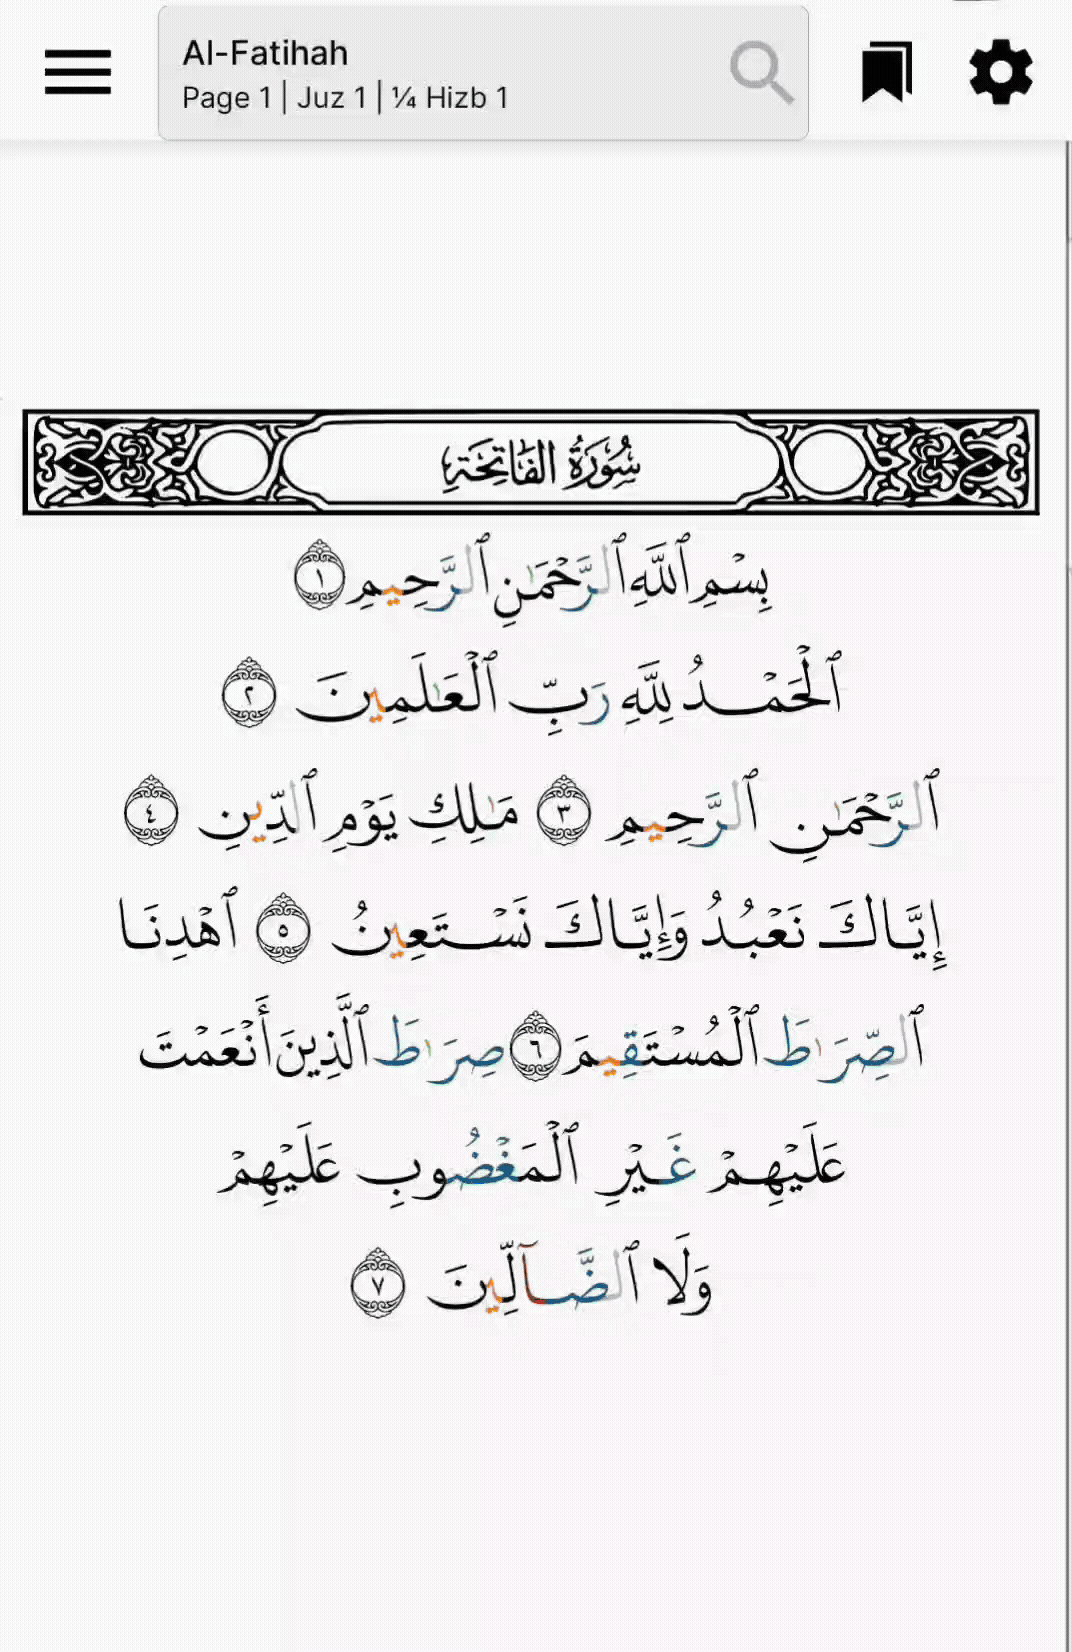 Al-Fatihah
Page 1 | Juz 1 | ¼ Hizb 1
سُورَةُ الفَاتِحَةِ
بِسۡمِ ٱللَّهِ ٱلرَّحۡمَٰنِ ٱلرَّحِيمِ ١
ٱلۡحَمۡدُ لِلَّهِ رَبِّ ٱلۡعَٰلَمِينَ ٢
ٱلرَّحۡمَٰنِ ٱلرَّحِيمِ ٣ مَٰلِكِ يَوۡمِ ٱلدِّينِ ٤
إِيَّاكَ نَعۡبُدُ وَإِيَّاكَ نَسۡتَعِينُ ٥ ٱهۡدِنَا
ٱلصِّرَٰطَ ٱلۡمُسۡتَقِيمَ ٦ صِرَٰطَ ٱلَّذِينَ أَنۡعَمۡتَ
عَلَيۡهِمۡ غَيۡرِ ٱلۡمَغۡضُوبِ عَلَيۡهِمۡ
وَلَا ٱلضَّآلِّينَ ٧